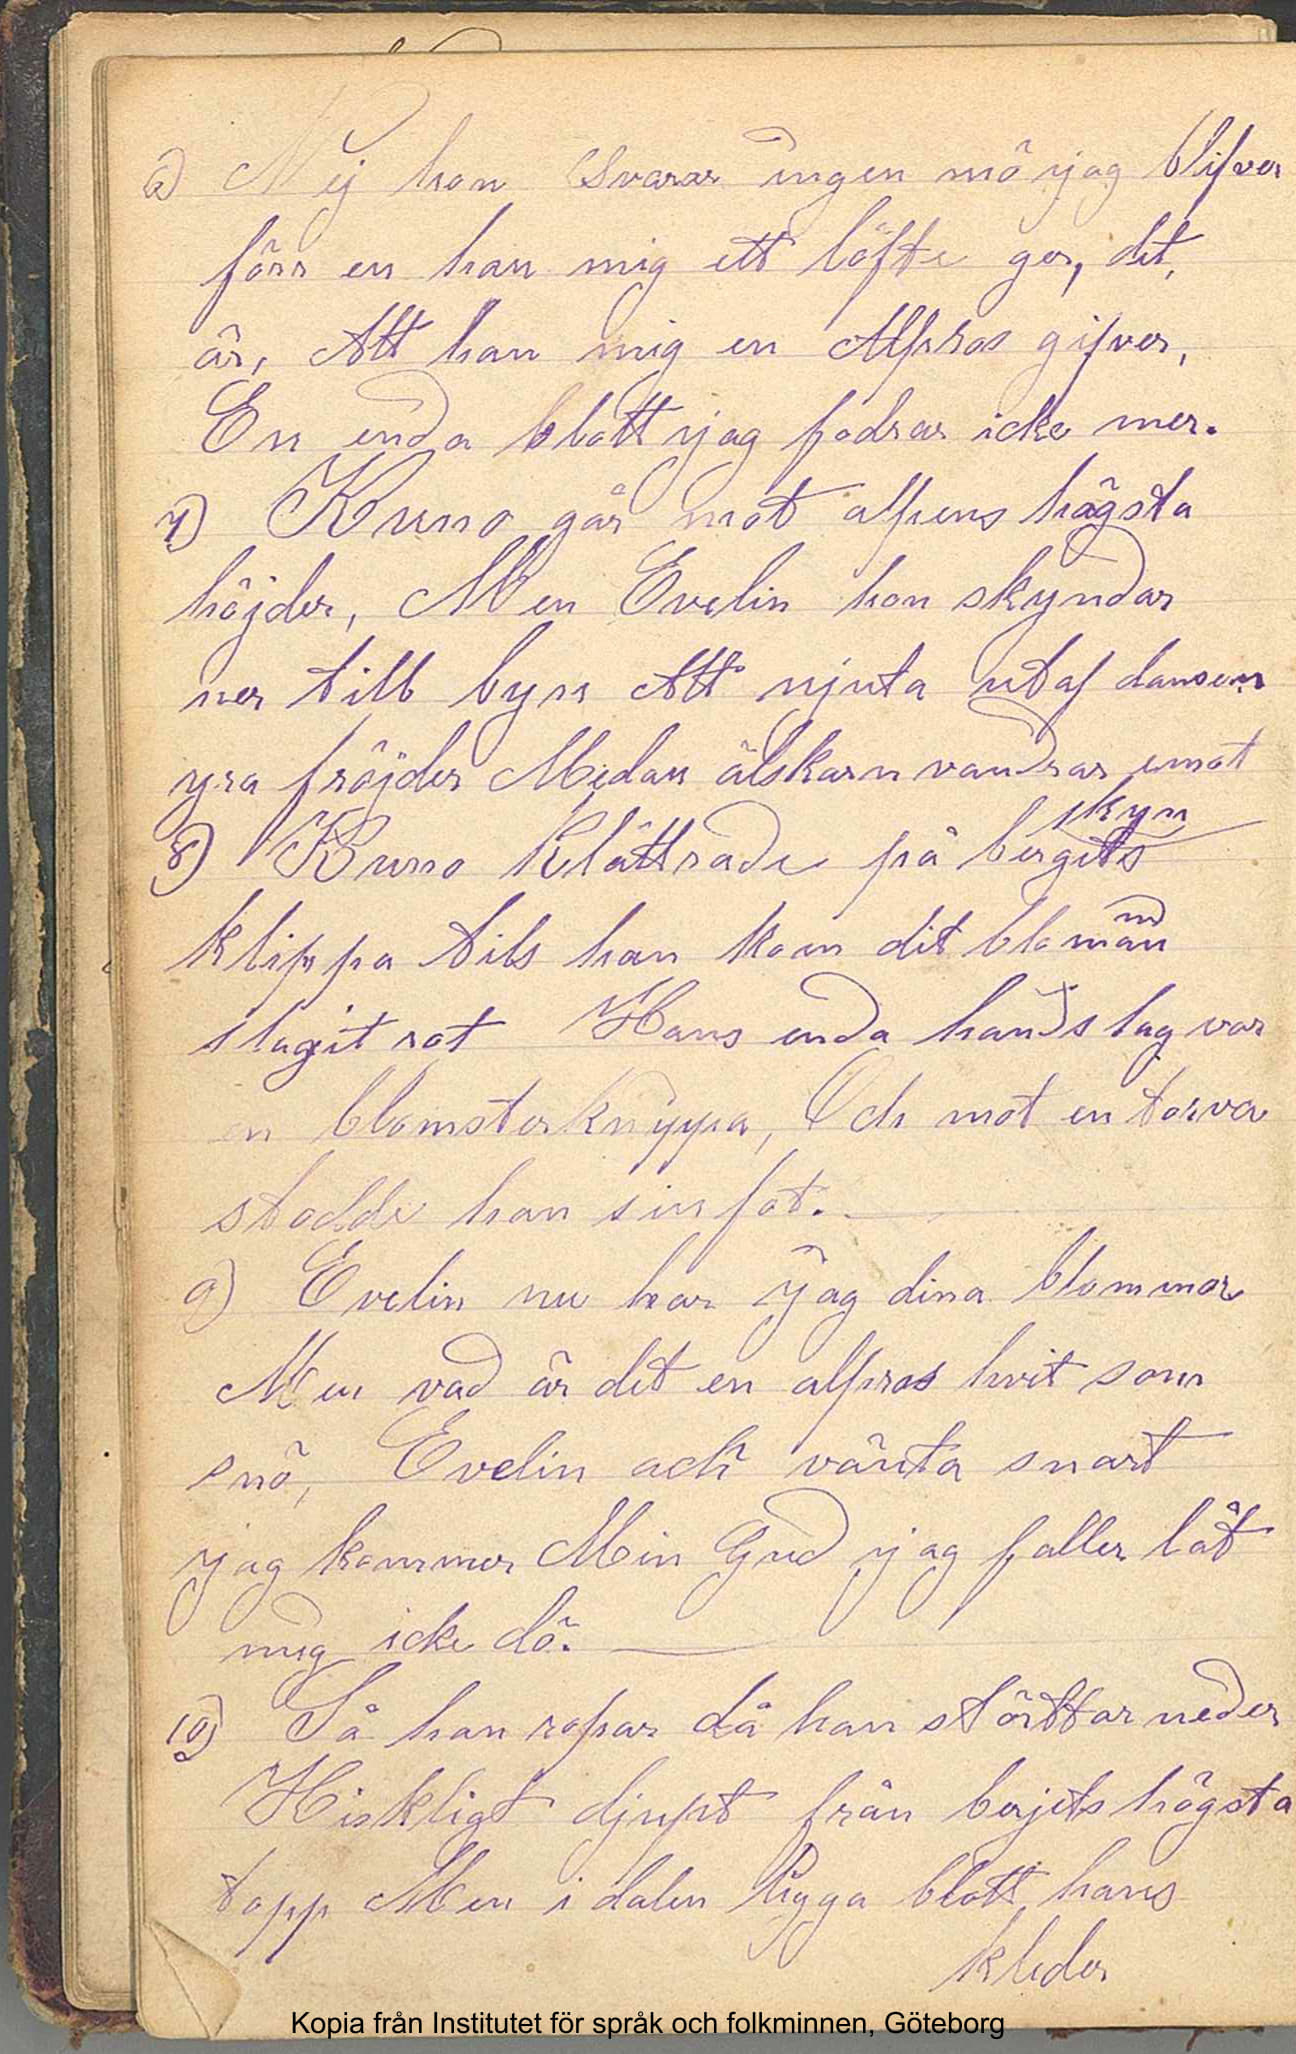 6) Nej hon Svarar ingen mö jag blifver
förr en han mig ett löfte ger, det,
är, Att han mig en Alpros gifver,
En enda blott jag fodrar icke mer.
7) Kuno går mot alpens högsta
höjder, Men Evelin hon skyndar
ner till byn Att njuta utaf dansen
yra fröjder Medan älskarn vandrar emot
skyn
8) Kuno klättrade på bergets
klippa tils han kom dit bloman
slagit rot Hans enda handslag var
en blomsterknippa, Och mot en torva
stodde han sin fot.
9) Evelin nu har jag dina blommor
Men vad är det en alpros hvit som
snö, Evelin ach vänta snart
jag kommer Min Gud jag faller låt
mig icke dö.
10) Så han ropar då han störttar neder
Hiskligt djupt från berjets högsta
topp Men i dalen ligga blott hans
kleder
Kopia från Institutet för språk och folkminnen, Göteborg